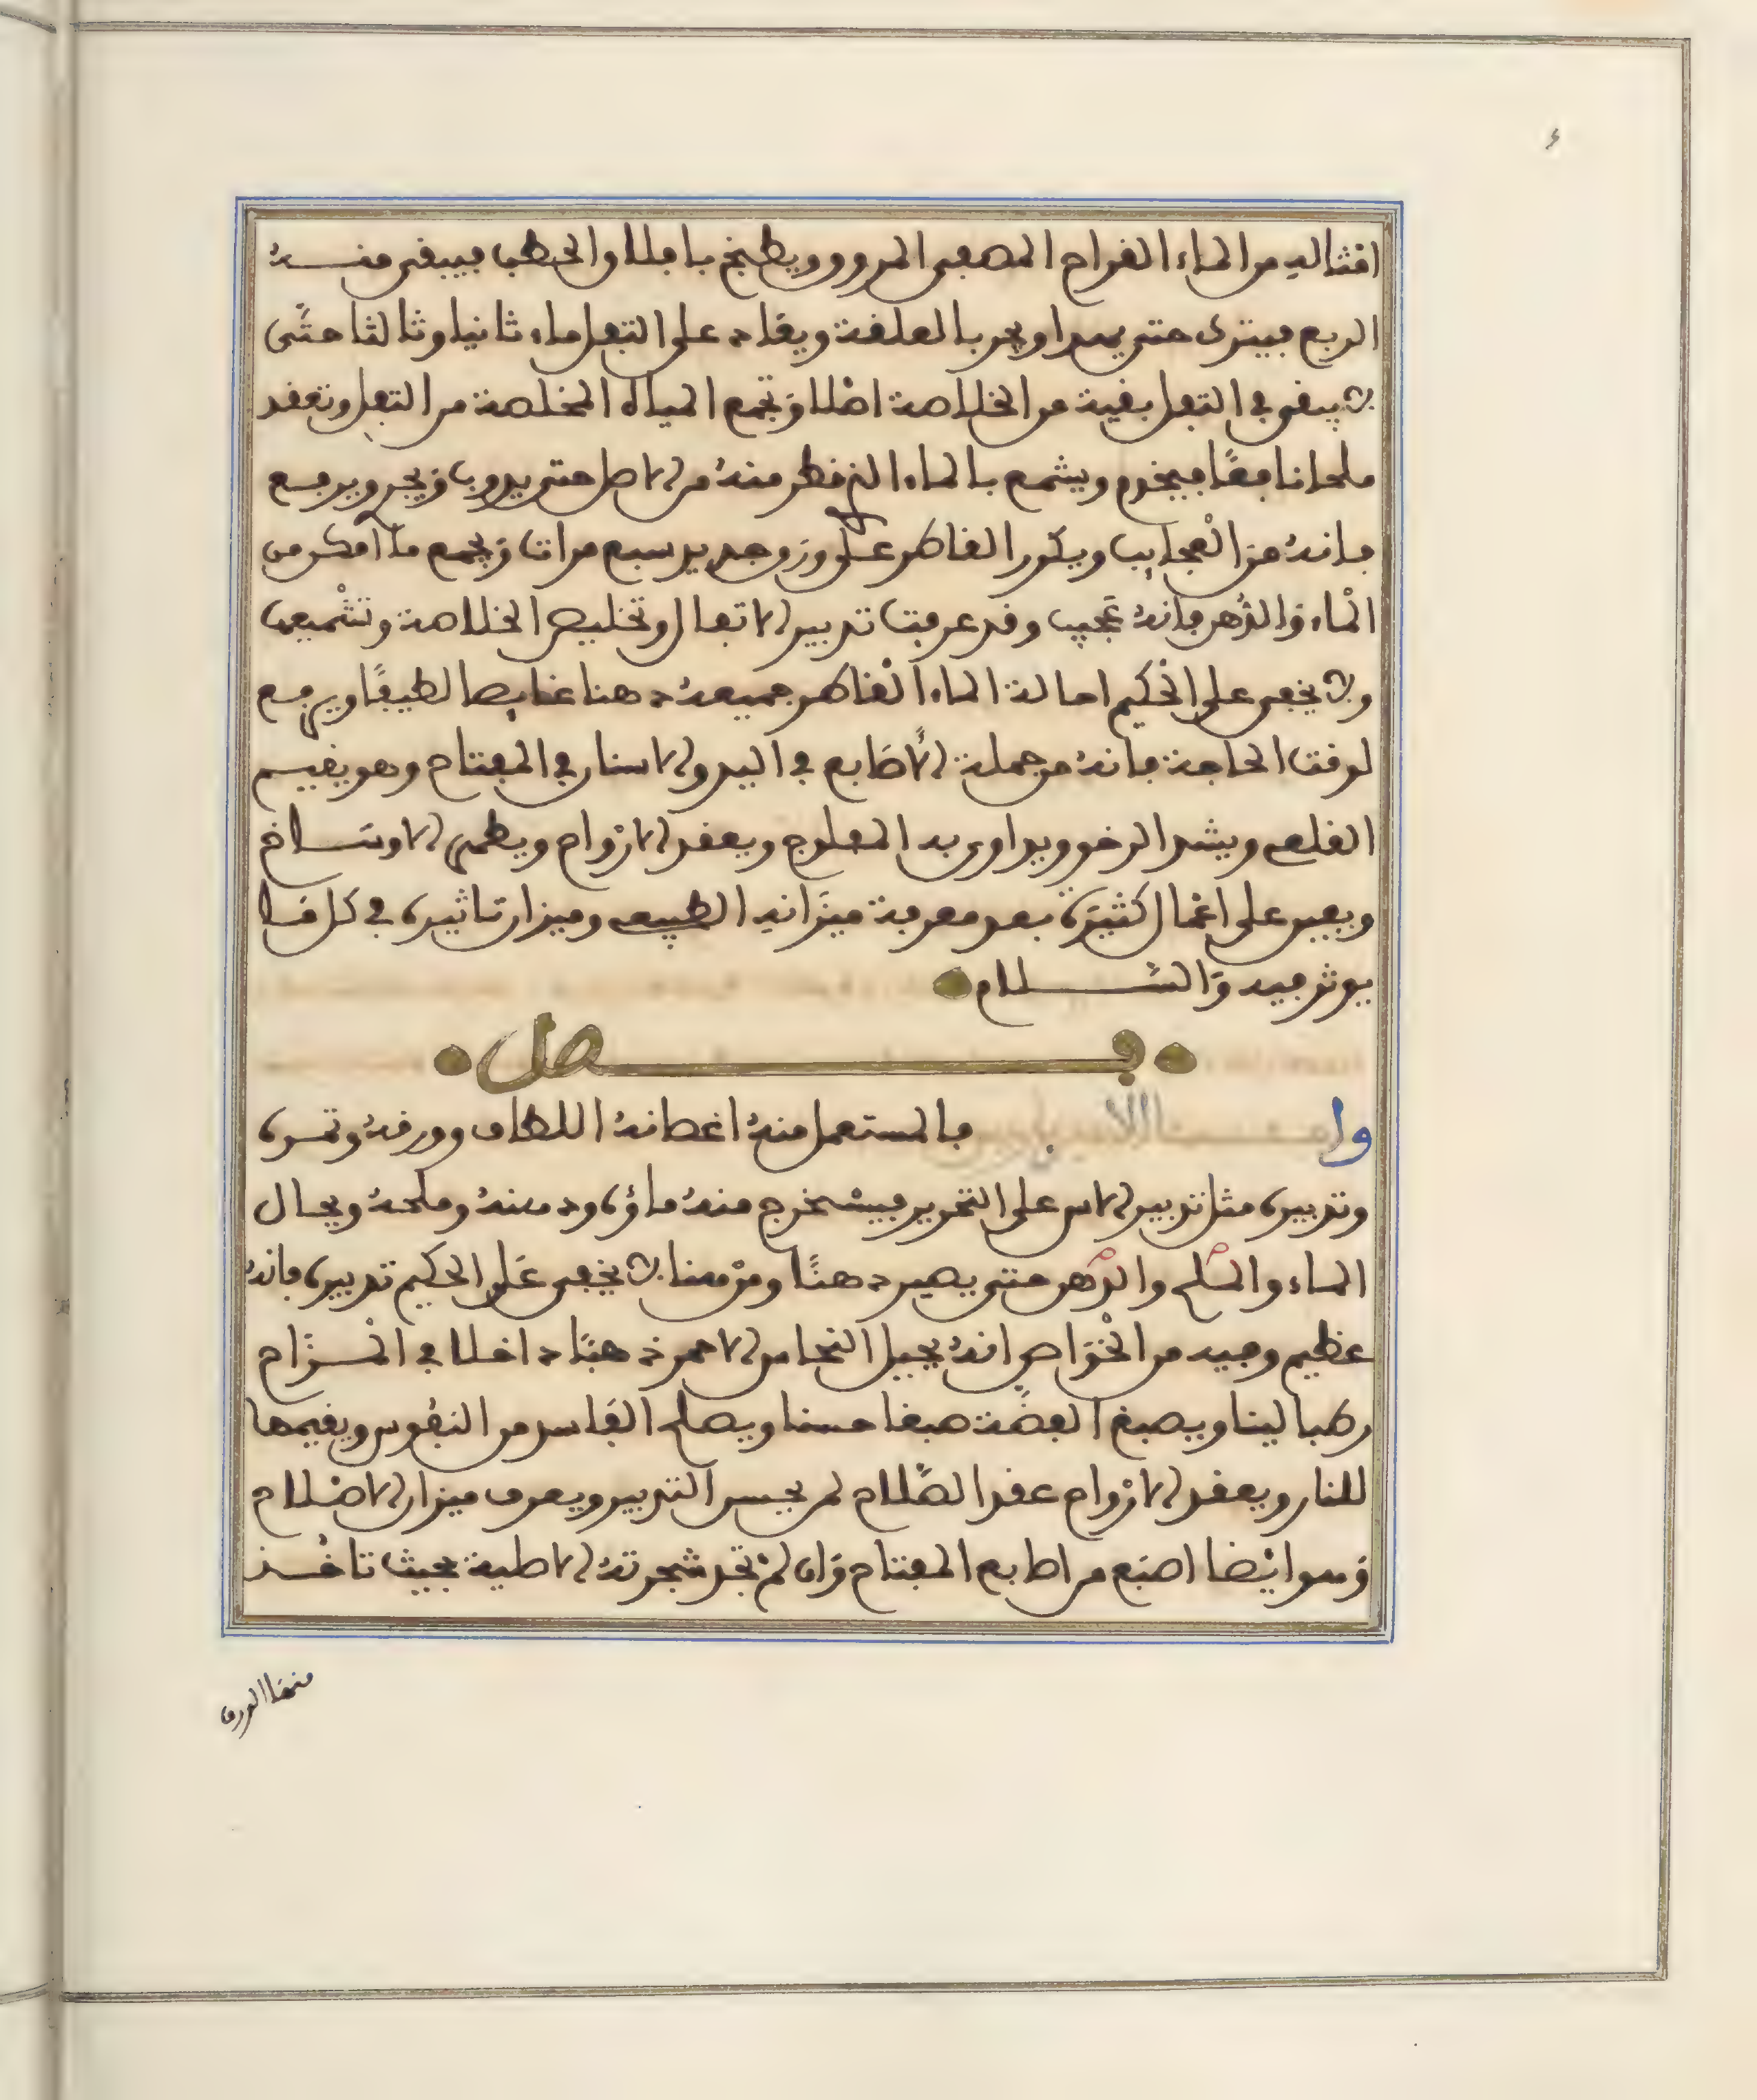 امثاله من الماء القراح المصفى المروق ويطبخ باملا والحطب فيبقى منه
الربع فيترك حتى يهدا ويجر بالعلقة ويعاد على الثفل ماء ثانيا وثالثا حتى
لا يبقى في الثفل بقية من الخلاصة اصلا وتجمع المياه المخلصة من الثفل وتعقد
ملحا نافعا فيخدم ويشمع بالماء الذي قطر منه من الاصل حتى يذوب ويجري ويرفع
فانه من العجايب ويكرر القاطر على وزن جديد سبع مرات ويجمع ما امكن من
الماء والدهن فانه عجيب وقد عرفت تدبير الاتفال وتخليص الخلاصة وتشميعها
ولا يخفى على الحكيم احالة الماء القاطر جميعه دهنا غايصا لطيفا ويرفع
لوقت الحاجة فانه من جملة الاصابع في اليد والاسنان في المفتاح وهو يقيم
القلعي ويشد الرخو ويداوى به المفلوج ويعقد الارواح ويطهر الاوساخ
ويعين على اعمال كثيرة بعد معرفة ميزانه الطبيعي وميزان تاثيره في كل ما
يوثر فيه والسلام
فصل
واما فالمستعمل منه اغصانه اللطاف وورقه وثمره
وتدبيره مثل تدبير الاس على التحرير فيستخرج منه ماؤه ودهنه وملحه ويحال
الماء والملح والدهن حتى يصير دهنا ومن هنا لا يخفى على الحكيم تدبيره فانه
عظيم وفيه من الخواص انه يحيل النحاس الاحمر ذهبا داخلا في المزاج
رطبا لينا ويصبغ الفضة صبغا حسنا ويصلح الفاسد من النفوس ويقيمها
للنار ويعقد الارواح عقد الصلاح لمن يحسن التدبير ويعرف ميزان الاصلاح
وهو ايضا اصبع من اصابع المفتاح وان لم تجد شجرته الاصلية بحيث تاخذ
منها الورق